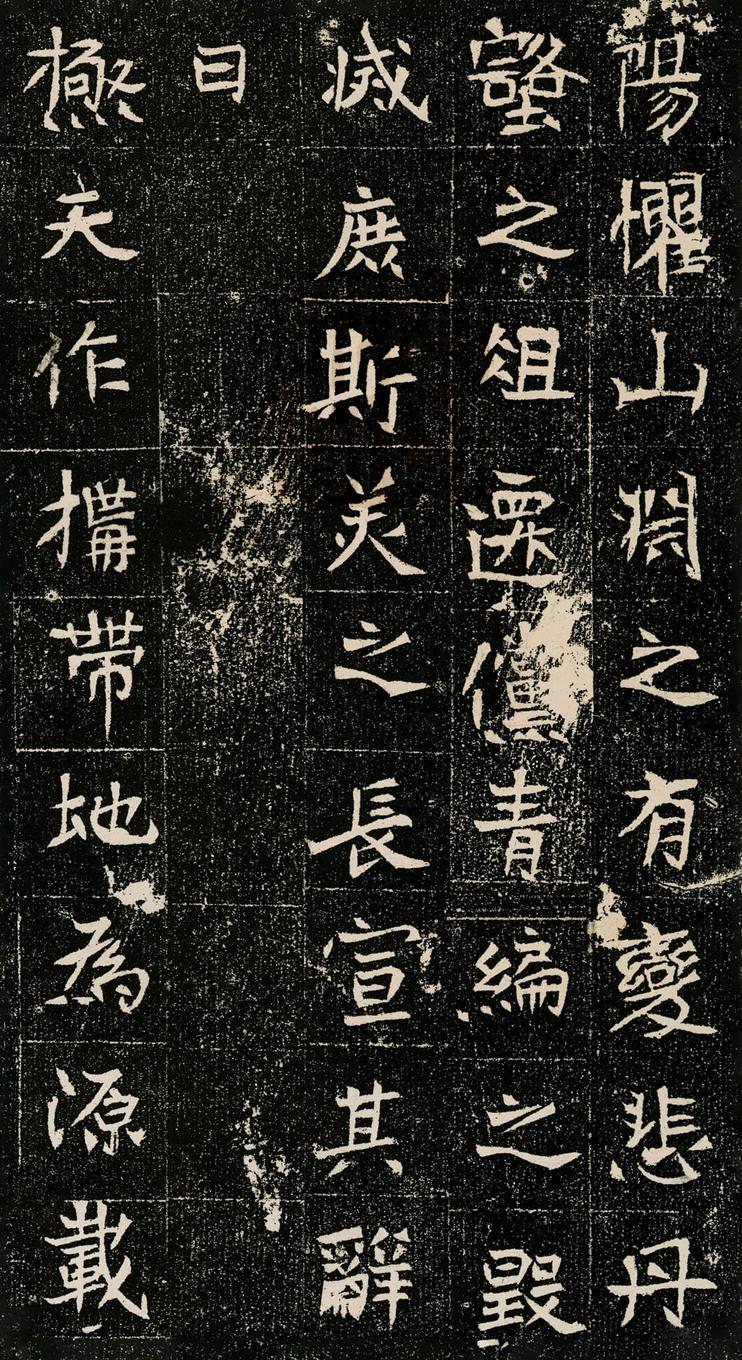 陽懼山淵之有變悲丹
壑之俎遷青編之毀
滅庶斯美之長宣其辭
曰
極天作搆帶地為源載